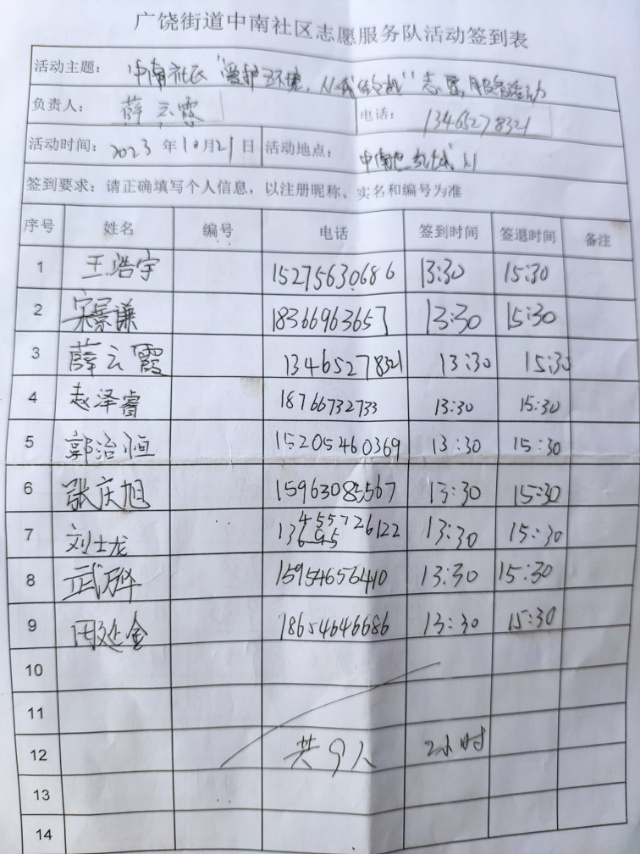 广饶街道中南社区志愿服务队活动签到表
活动主题： 中南社区"爱护环境，从我做起"志愿服务活动
负责人： 薛云霞 电话： 13465278321
活动时间： 2023 年 10 月 21 日 活动地点： 中南
签到要求：请正确填写个人信息，以注册昵称、实名和编号为准
序号 姓名 编号 电话 签到时间 签退时间 备注
1 王浩宇 15275630686 13:30 15:30
2 宋景谦 18366963657 13:30 15:30
3 薛云霞 13465278321 13:30 15:30
4 志泽睿 18766732733 13:30 15:30
5 郭治恒 15205460369 13:30 15:30
6 张庆旭 15963085567 13:30 15:30
7 刘士龙 13:30 15:30
8 武 15954656410 13:30 15:30
9 田延金 18654646686 13:30 15:30
10
11
12 共9人 2小时
13
14